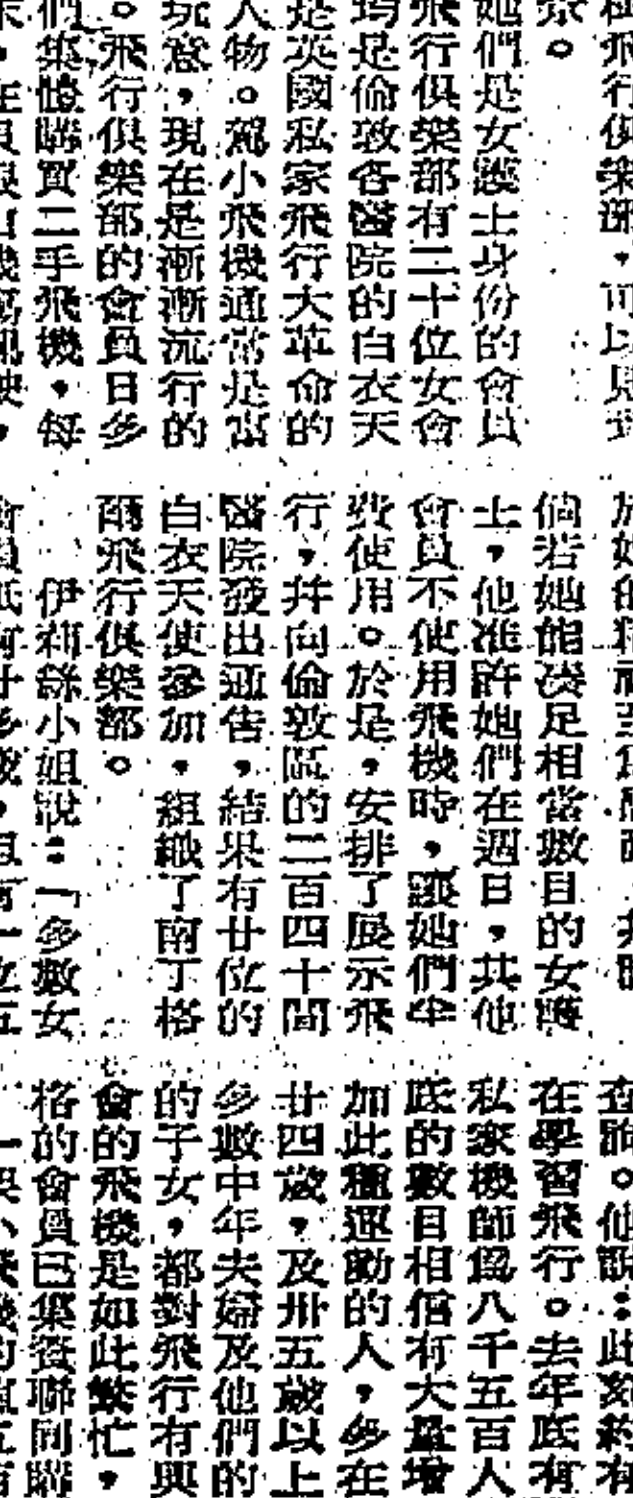 飛行俱樂部,可以見到
她們是女護士身份的會員
飛行俱樂部有二十位女會
均是倫敦各醫院的白衣天
是英國私家飛行大革命的
人物。駕小飛機通常是富
玩意,現在是漸漸流行的
。飛行俱樂部的會員日多
們集體購買二手飛機,每
倘若她能湊足相當數目的女護
士,他准許她們在週日,其他
會員不使用飛機時,讓她們半
費使用。於是,安排了展示飛
行,幷向倫敦區的二百四十間
醫院發出通告,結果有廿位的
白衣天使參加,組織了南丁格
爾飛行俱樂部。
伊莉絲小姐說:「多數女
會員祇有廿多歲,但有一位五
查詢。他說:此刻約有
在學習飛行。去年底有
私家機師爲八千五百人
底的數目相信有大量增
加此種運動的人,多在
廿四歲,及卅五歲以上
多數中年夫婦及他們的
的子女,都對飛行有興
會的飛機是如此繁忙,
格的會員已集資聯同購